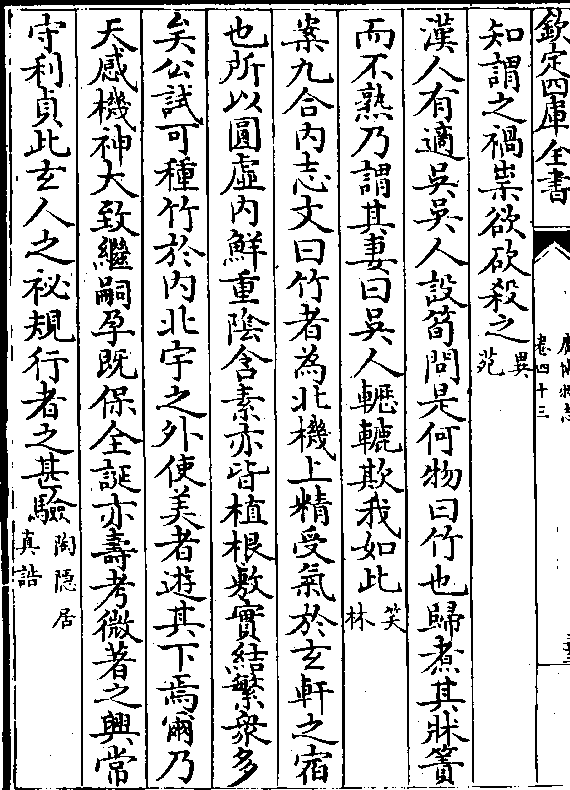 欽定四庫全書
卷四十三
知謂之禍祟欲砍殺之異苑
漢人有適吳吳人設筍問是何物曰竹也歸煮其牀簀
而不熟乃謂其妻曰吳人轣轆欺我如此笑林
案九合内志文曰竹者為北機上精受氣於玄軒之宿
也所以圓虛内鮮重陰含素亦皆植根敷實結繁衆多
矣公試可種竹於内北宇之外使美者遊其下焉爾乃
天感機神大致繼嗣孕既保全誕亦壽考微著之興常
守利貞此玄人之祕規行者之甚驗陶隠居真誥